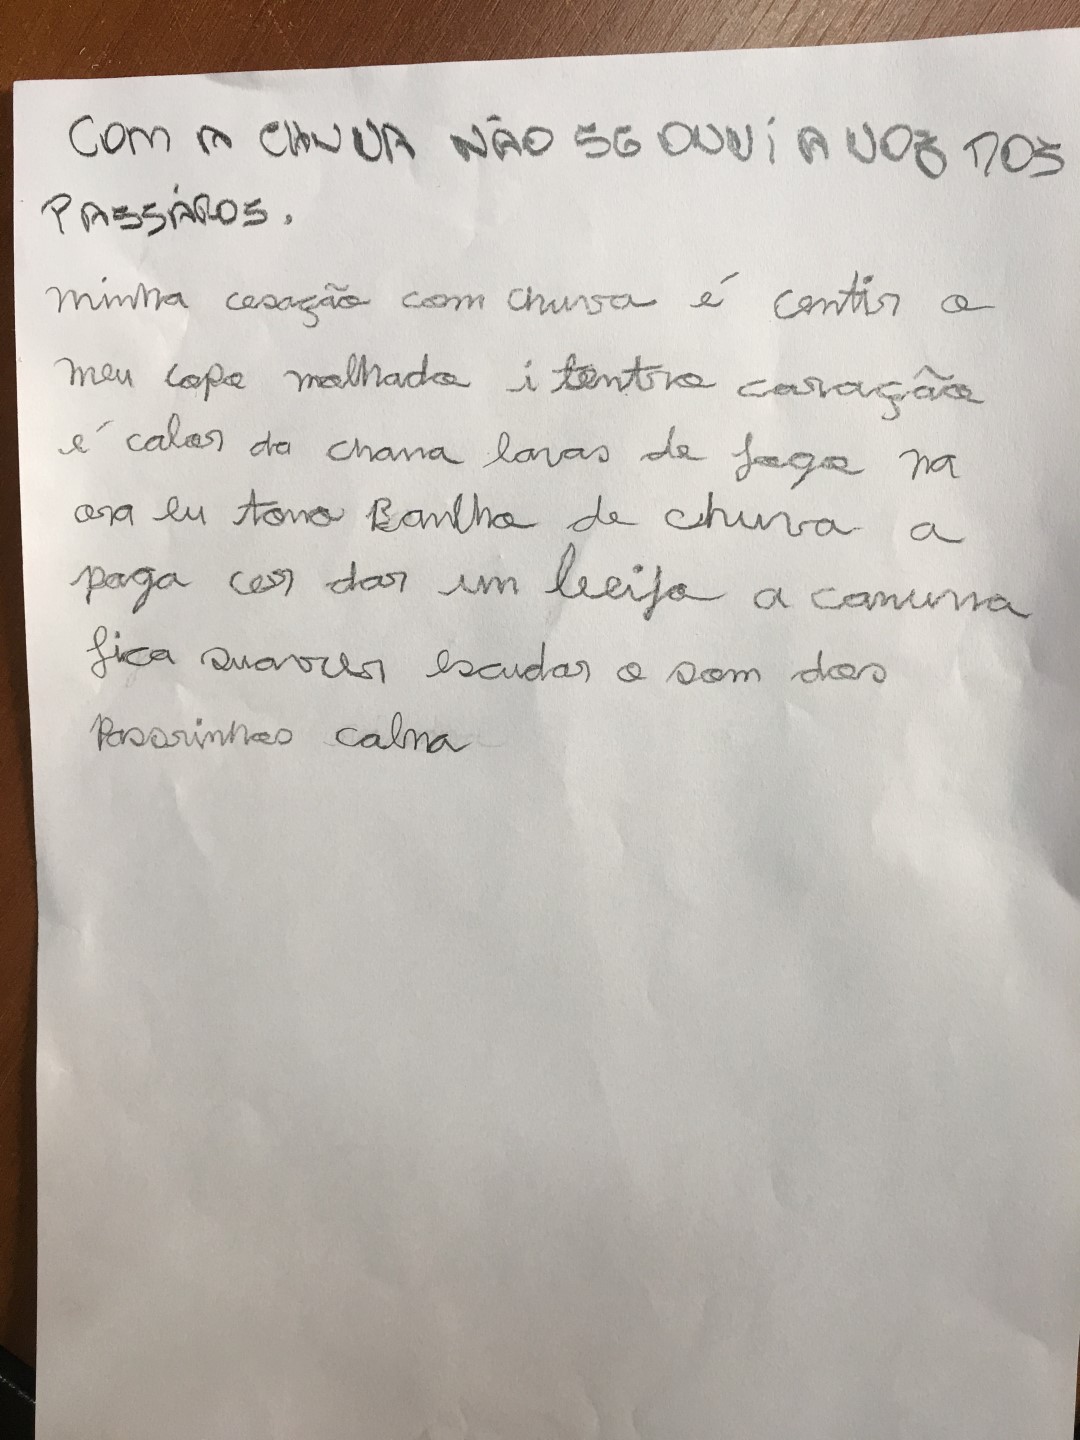 COM A CHUVA NÃO SE OUVÍ A VOZ DOS
PASSÁROS.
minha cesação com chuva é centir o
meu copo molhado i tentro coração
é calor da chama lavas de fogo na
ora eu tomo Banlho de chuva a
paga cer dar um beijo a comuma
fica suavcer escudar o som dos
Passrinhos calma